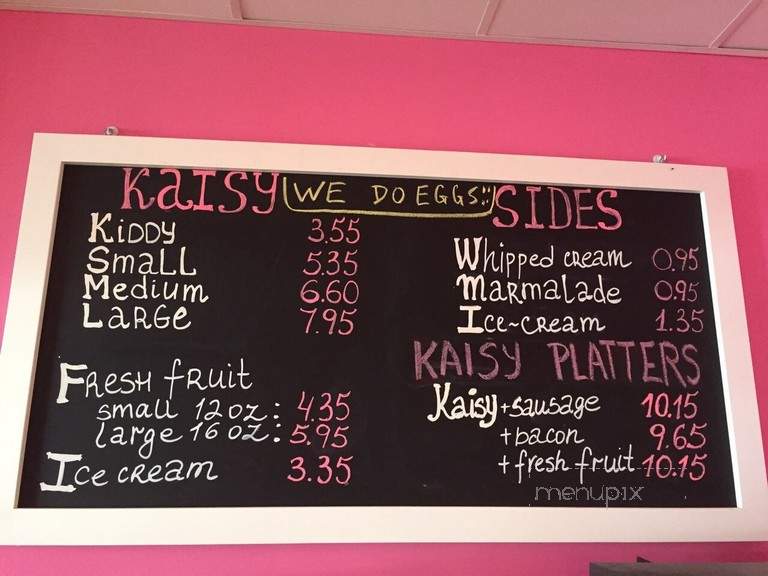 KAISY
WE DO EGGS::
KIDDY 3.55
Small 5.35
Medium 6.60
LARGe 7.95
FResH fRuiT
small 12 oz: 4.35
large 16 oz: 5.95
Ice cream 3.35
SIDES
Whipped cream 0.95
MaRmalade 0.95
Ice-cream 1.35
KAISY PLATTERS
Kaisy + sausage 10.15
+ bacon 9.65
+ fresh fruit 10.15
menupix